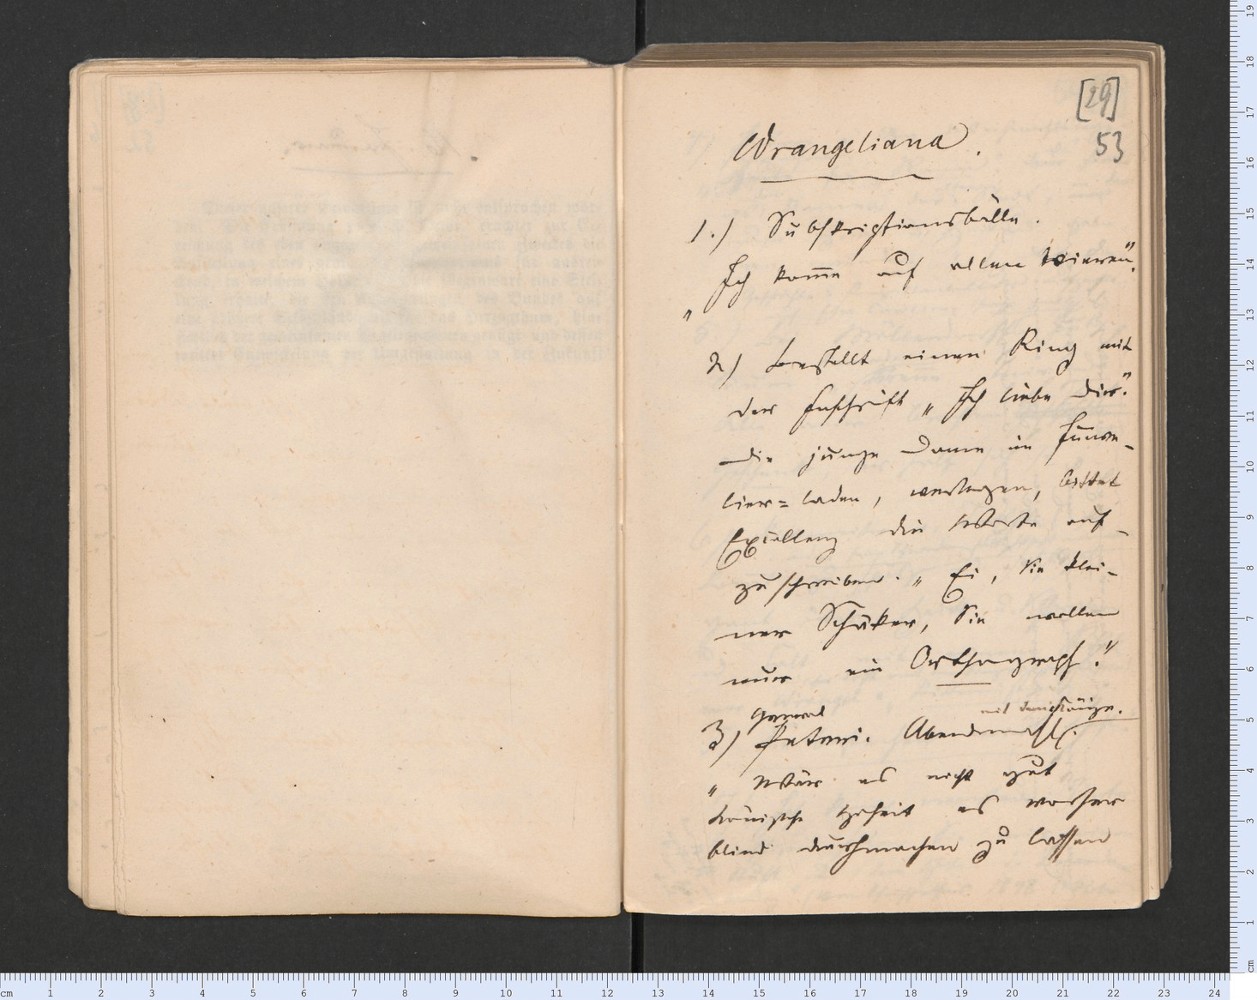 [29]
53
Wrangeliana.
1.) Subskriptionsbälle.
„Ich komme auf allen Vieren“.
2) bestellt einen Ring mit
der Inschrift „Ich liebe Dir“.
die junge Dame im Juwe-
lier=Laden, verlegen, bittet
Exzellenz die Worte auf-
zuschreiben. „Ei, Sie klei-
ner Schäker, Sie wollen
nur ein Orthograph.“
3) General Abendmahl.
„Wär es nicht gut
Königliche Hoheit es vorher
blind durchmachen zu lassen